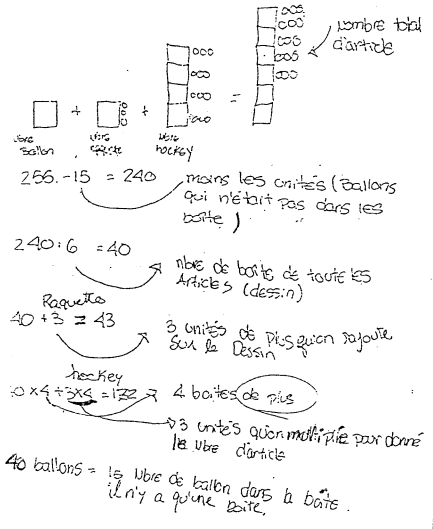 nombre total
d'article
+ + =
nbre
Ballon
nbre
nbre
hockey
255.-15 = 240
moins les unités (Ballons
qui n'était pas dans les
boîte)
240:6 = 40
nbre de boîte de toute les
Articles (dessin)
Raquette
40 + 3 = 43
3 unités de plus qu'on rajoute
sur le Dessin
hockey
0 x 4 + 3x4 = 172
4 boites de plus
3 unités qu'on multiplie pour donné
le nbre d'article
40 ballons = le nbre de ballon dans la boîte.
il n'y a qu'une boite.